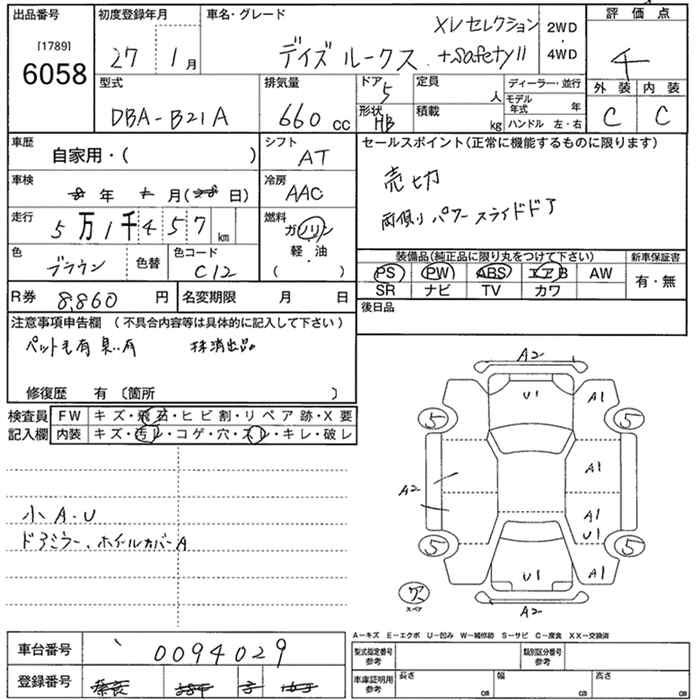 出品番号 初度登録年月 車名・グレード XVセレクション 2WD・4WD 評価点
[1789]
6058 27 1月 デイズ ルークス +Safety II 4
型式 排気量 ドア 5 定員 人 ディーラー・並行 外装 内装
DBA-B21A 660cc 形状 HB 積載 kg モデル年式 年 ハンドル 左・右 C C
車歴 自家用・( ) シフト AT セールスポイント(正常に機能するものに限ります)
車検 年 月( 日) 冷房 AAC 売切
走行 5万1千457km 燃料 ガソリン 軽・油 ( ) 両側リパワースライドドア
色 ブラウン 色替 色コード C12 装備品(純正品に限り丸をつけて下さい) 新車保証書
PS PW ABS エアB AW 有・無
R券 8,860円 名変期限 月 日 SR ナビ TV カワ
注意事項申告欄 (不具合内容等は具体的に記入して下さい) 後日品
ペット毛有 臭い有 抹消出品
修復歴 有 〔箇所 〕
検査員 FW キズ・飛石・ヒビ割・リペア跡・X要
記入欄 内装 キズ・汚レ・コゲ・穴・スレ・キレ・破レ
A2
U1 A1
5 5
A1
A2
A1
U1
5 5
U1 A1
A2
ア
スペア
小A・U
ドアミラー、ホイルカバーA
A-キズ E-エクボ U-凹み W-補修跡 S-サビ C-腐食 XX-交換済
車台番号 0094029 型式指定番号 参考 類別区分番号 参考
登録番号 車庫証明用 参考 長さ cm 幅 cm 高さ cm